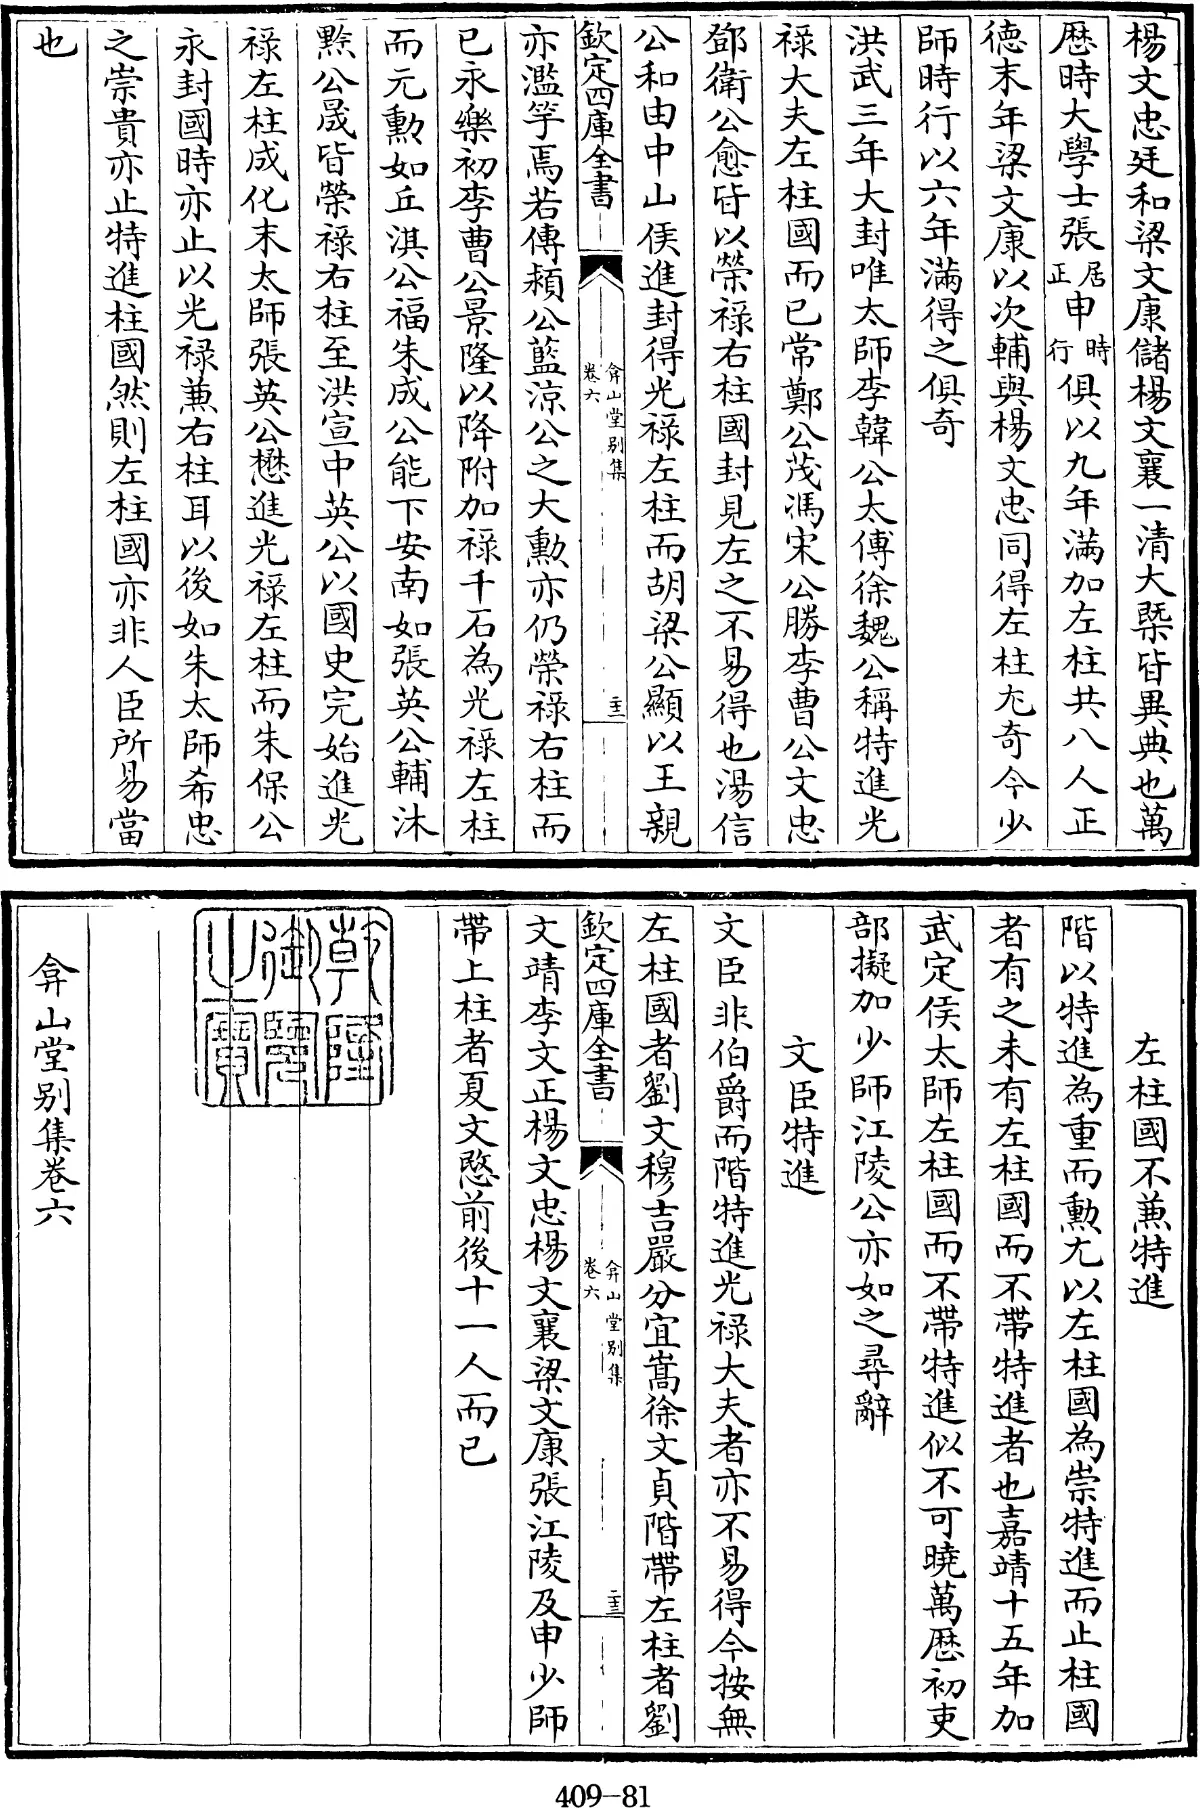 楊文忠廷和梁文康儲楊文襄一清大槩皆異典也萬
厯時大學士張居正申時行俱以九年滿加左柱共八人正
德末年梁文康以次輔與楊文忠同得左柱尤奇今少
師時行以六年滿得之俱奇
洪武三年大封唯太師李韓公太傅徐魏公稱特進光
祿大夫左柱國而已常鄭公茂馮宋公勝李曹公文忠
鄧衛公愈皆以榮祿右柱國封見左之不易得也湯信
公和由中山侯進封得光祿左柱而胡梁公顯以王親
欽定四庫全書
弇山堂别集
卷六
二十二
亦濫竽焉若傅潁公藍涼公之大勳亦仍榮祿右柱而
已永樂初李曹公景隆以降附加祿千石為光祿左柱
而元勳如丘淇公福朱成公能下安南如張英公輔沐
黔公晟皆榮祿右柱至洪宣中英公以國史完始進光
祿左柱成化末太師張英公懋進光祿左柱而朱保公
永封國時亦止以光祿兼右柱耳以後如朱太師希忠
之崇貴亦止特進柱國然則左柱國亦非人臣所易當
也
左柱國不兼特進
階以特進為重而勳尤以左柱國為崇特進而止柱國
者有之未有左柱國而不帶特進者也嘉靖十五年加
武定侯太師左柱國而不帶特進似不可曉萬厯初吏
部擬加少師江陵公亦如之尋辭
文臣特進
文臣非伯爵而階特進光祿大夫者亦不易得今按無
左柱國者劉文穆吉嚴分宜嵩徐文貞階帶左柱者劉
欽定四庫全書
弇山堂别集
卷六
二十三
文靖李文正楊文忠楊文襄梁文康張江陵及申少師
帶上柱者夏文愍前後十一人而已
乾隆御覽之寶
弇山堂别集卷六
409-81